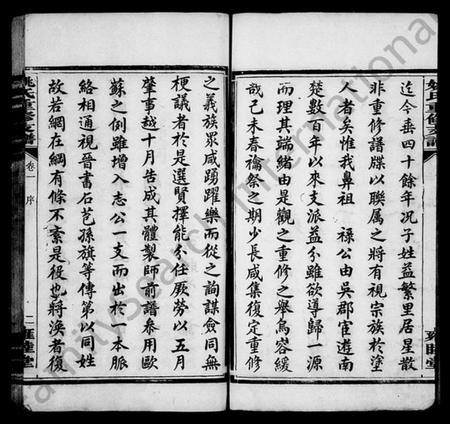 迄今垂四十餘年况子姓益繁里居星散
非重修譜牒以聯属之將有視宗族於塗
人者矣惟我鼻祖 祿公由吳郡宦遊南
楚數百年以來支派益分雖欲導歸一源
而理其端緒由是觀之重修之舉烏容緩
哉己未春禴祭之期少長咸集復定重修
之義族眾咸踴躍樂而從之詢謀僉同無
梗議者於是選賢擇能分任厥勞以五月
肇事越十月告成其體製師前譜參用歐
蘇之例雖增入志公一支而出於一本脈
絡相通視晉書石苞孫旗等傳第以同姓
故若網在綱有條不紊是役也將渙者復
姚氏重修支譜
卷一 序
二
雍睦堂
FamilySearch International